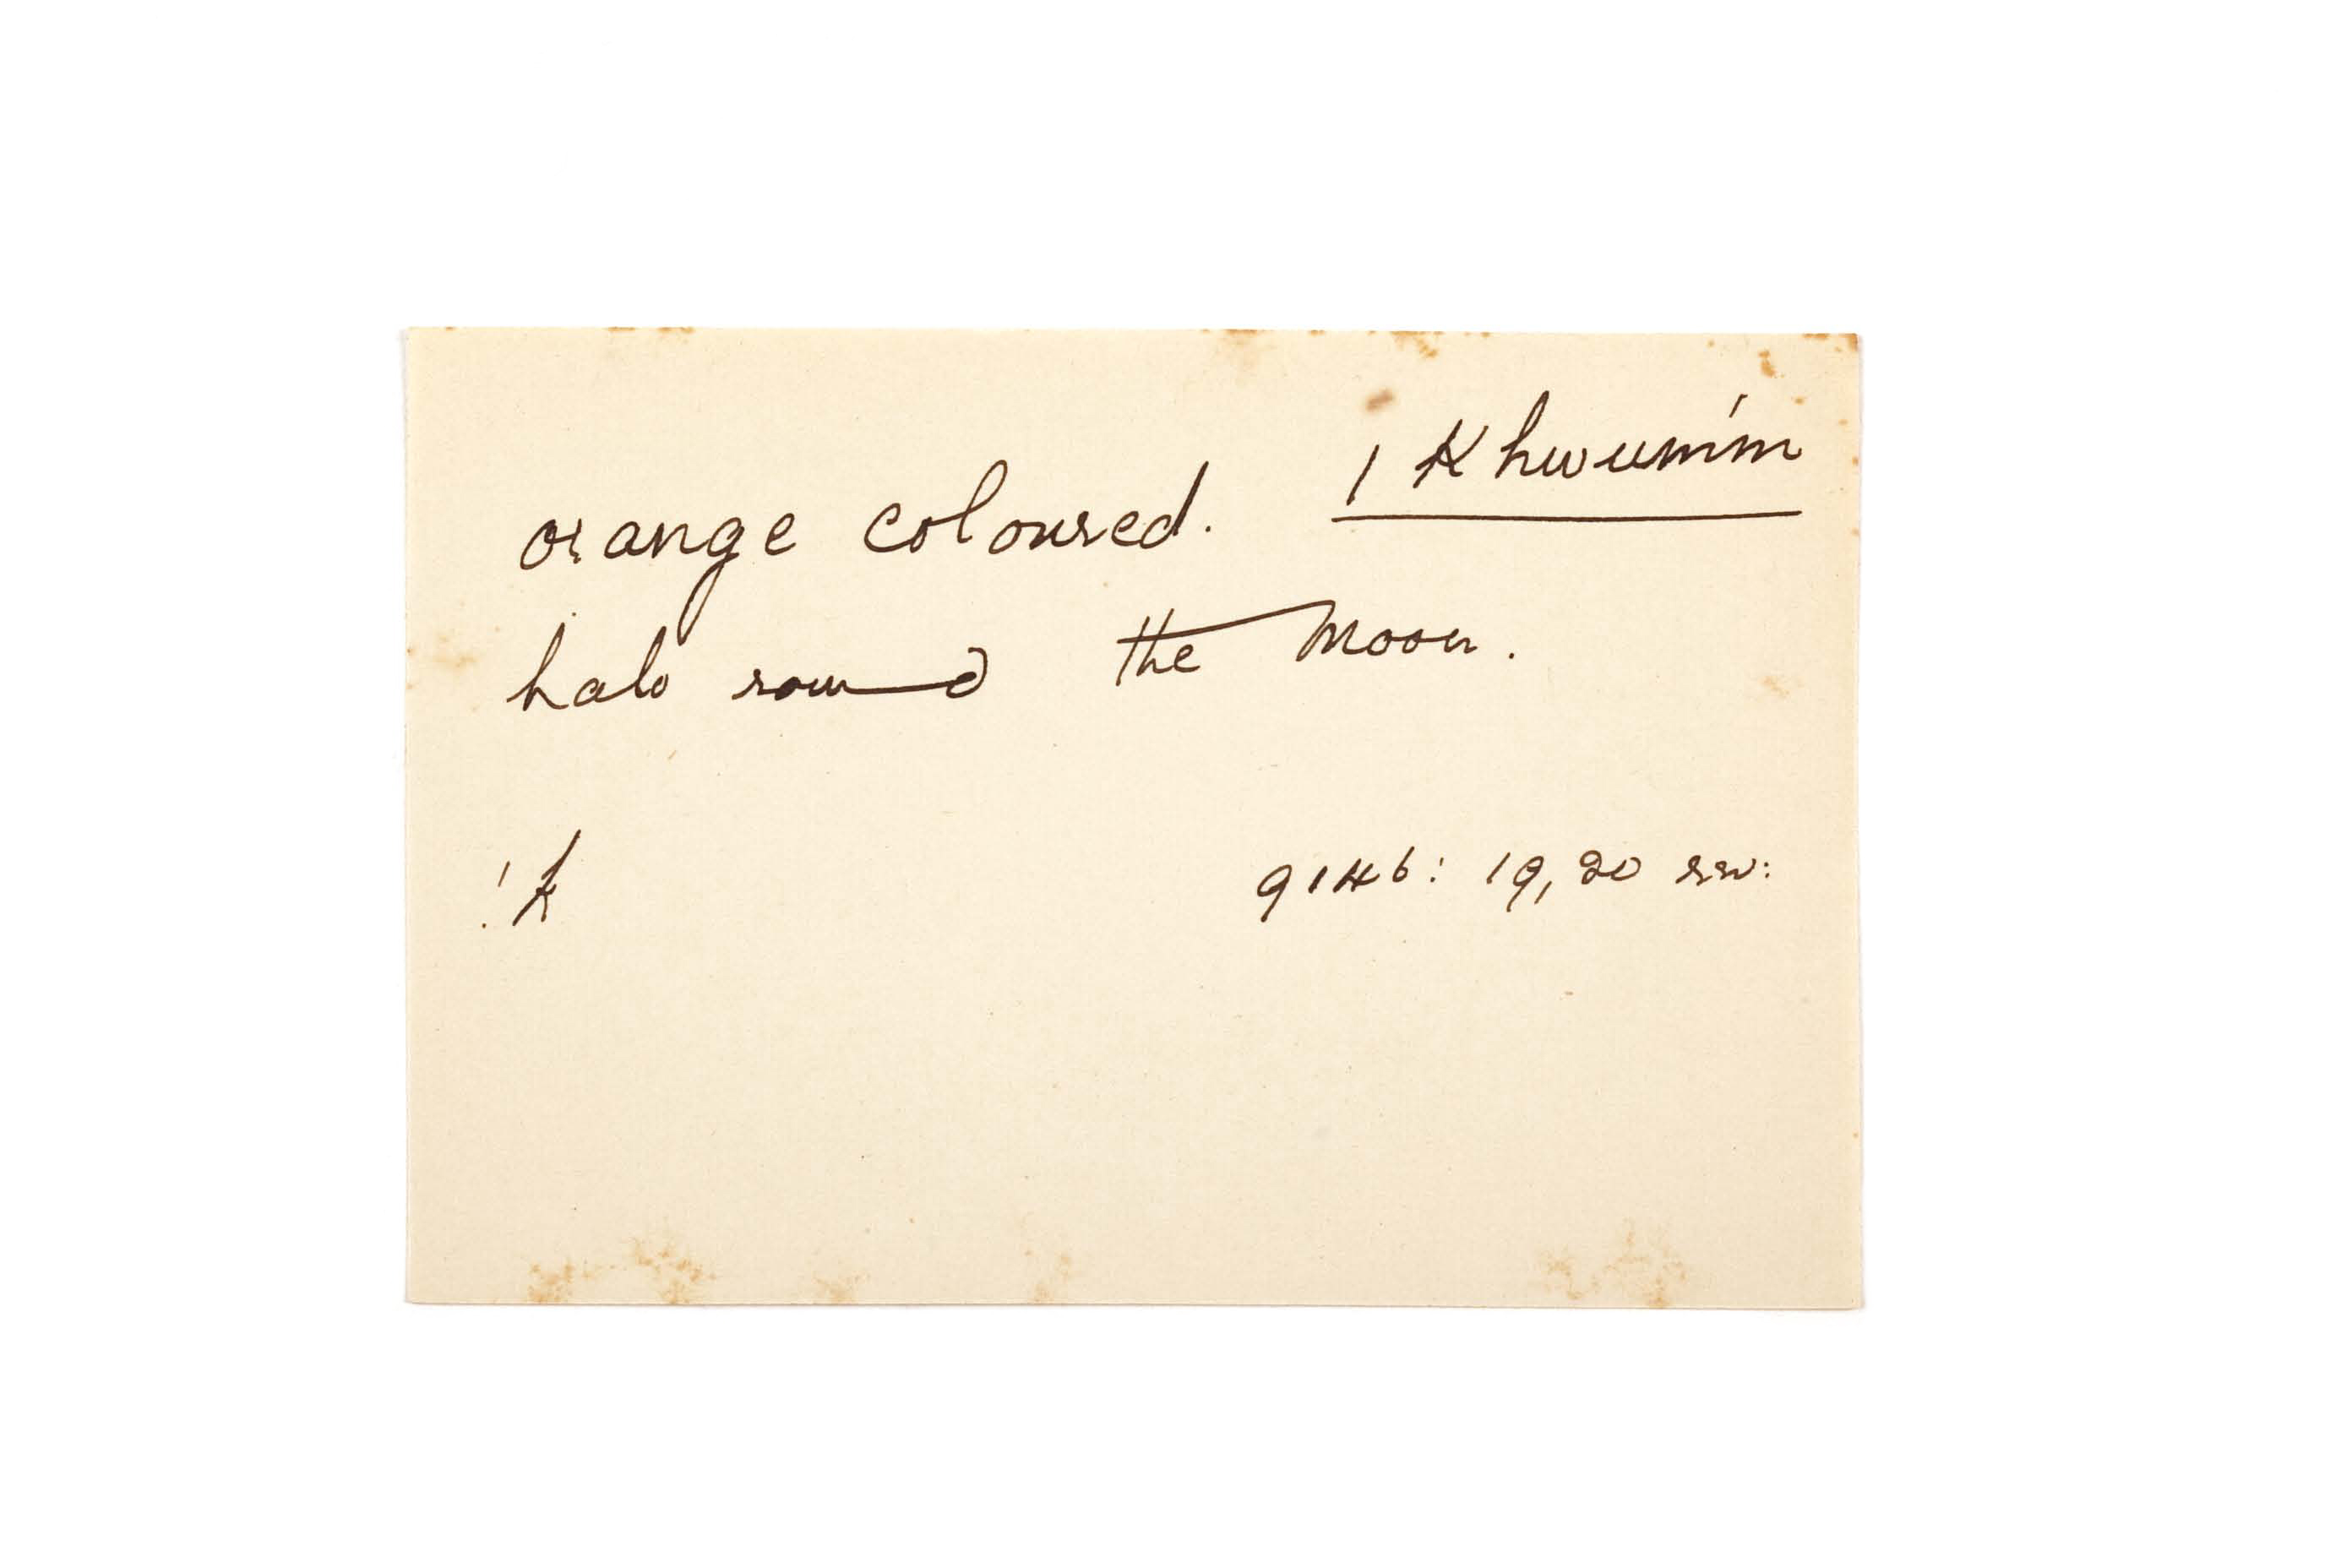 | Khwum'm
orange coloured.
halo round the Moon.
!k 9146: 19, 20 rev: